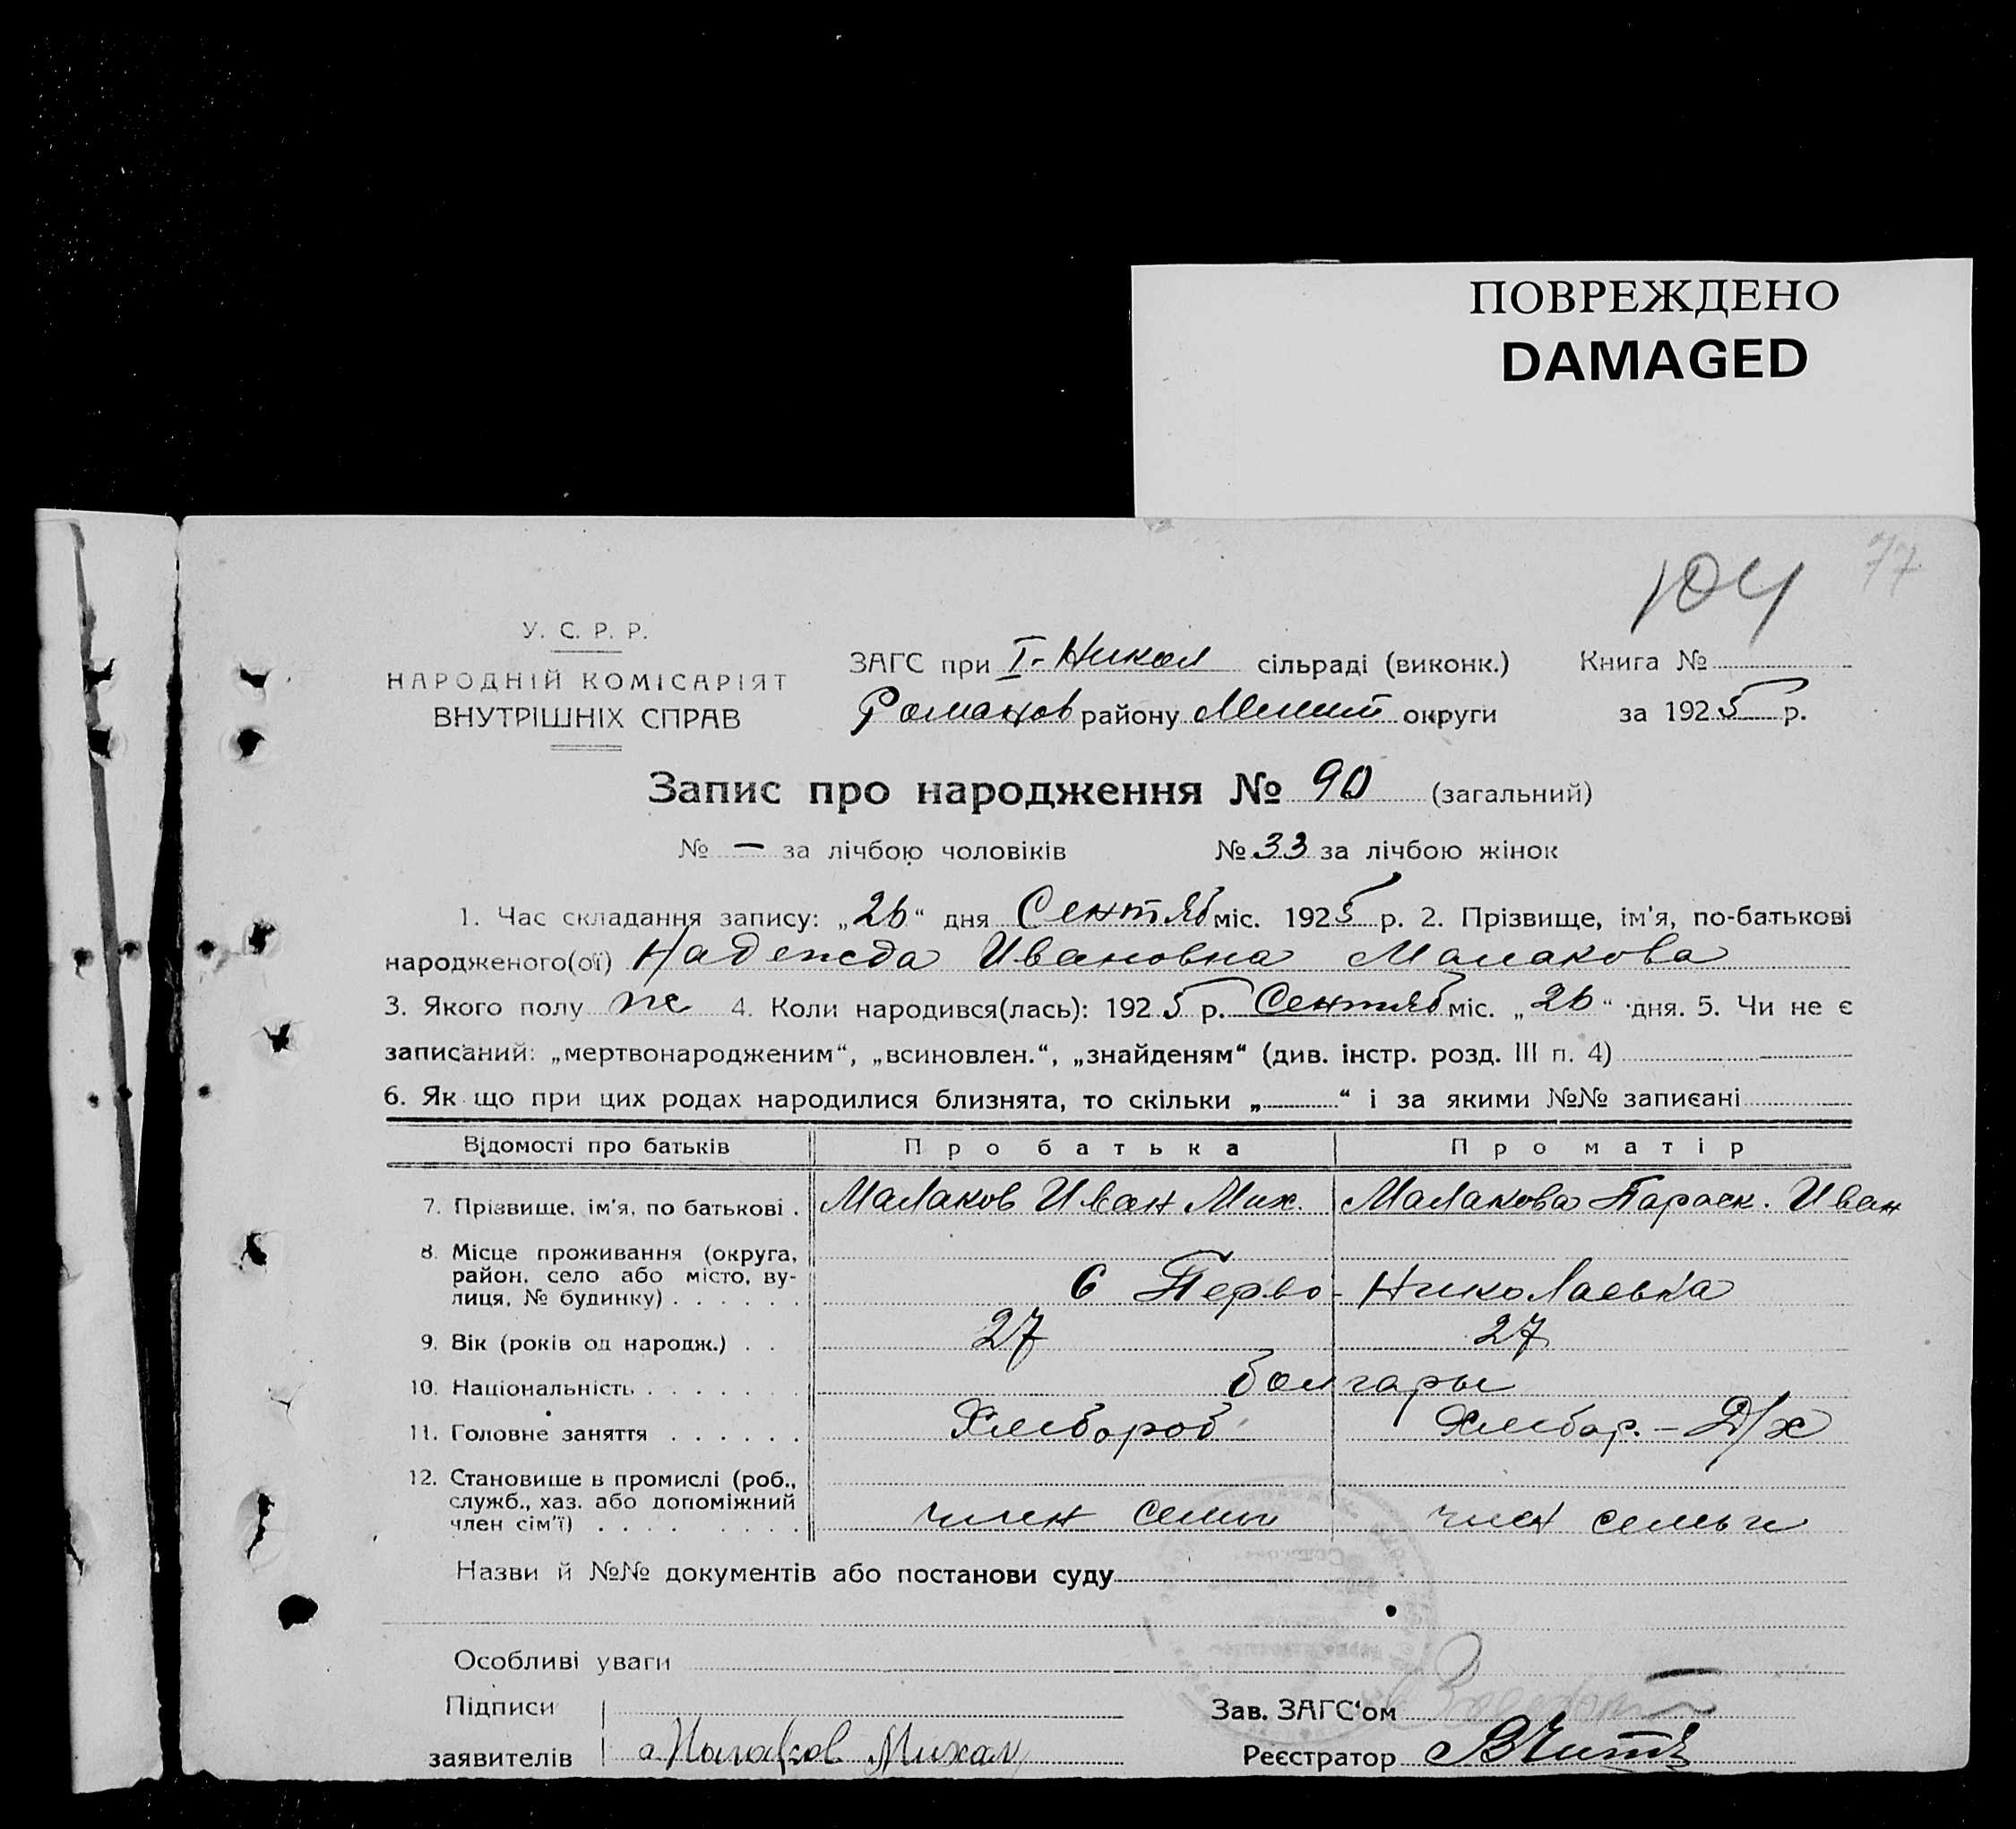 ПОВРЕЖДЕНО
DAMAGED
104 77
У. С. Р. Р.
НАРОДНІЙ КОМІСАРІЯТ
ВНУТРІШНІХ СПРАВ
ЗАГС при I-Никол сільраді (виконк.) Книга №
Романов району Мелит округи за 1925 р.
Запис про народження № 90 (загальний)
№ — за лічбою чоловіків № 33 за лічбою жінок
1. Час складання запису: „26“ дня Сентяб міс. 1925 р. 2. Прізвище, ім'я, по-батькові
народженого(ої) Надежда Ивановна Малакова
3. Якого полу же 4. Коли народився(лась): 1925 р. Сентяб міс. „26“ дня. 5. Чи не є
записаний: „мертвонародженим“, „всиновлен.“, „знайденям“ (див. інстр. розд. III п. 4)
6. Як що при цих родах народилися близнята, то скільки „ “ і за якими №№ записані
Відомості про батьків Про батька Про матір
7. Прізвище, ім'я, по батькові . Малаков Иван Мих. Малакова Параск. Иван
8. Місце проживання (округа,
район, село або місто, ву-
лиця, № будинку) . . . . . . С Перво-Николаевка
9. Вік (років од народж.) . . 27 27
10. Національність . . . . . . . болгары
11. Головне заняття . . . . . . Хлебороб Хлебор. - Д/х
12. Становище в промислі (роб.,
служб., хаз. або допоміжний
член сім'ї) . . . . . . . . член семьи член семьи
Назви й №№ документів або постанови суду
Особливі уваги
Підписи Зав. ЗАГС'ом
заявителів Малаков Михал Реєстратор